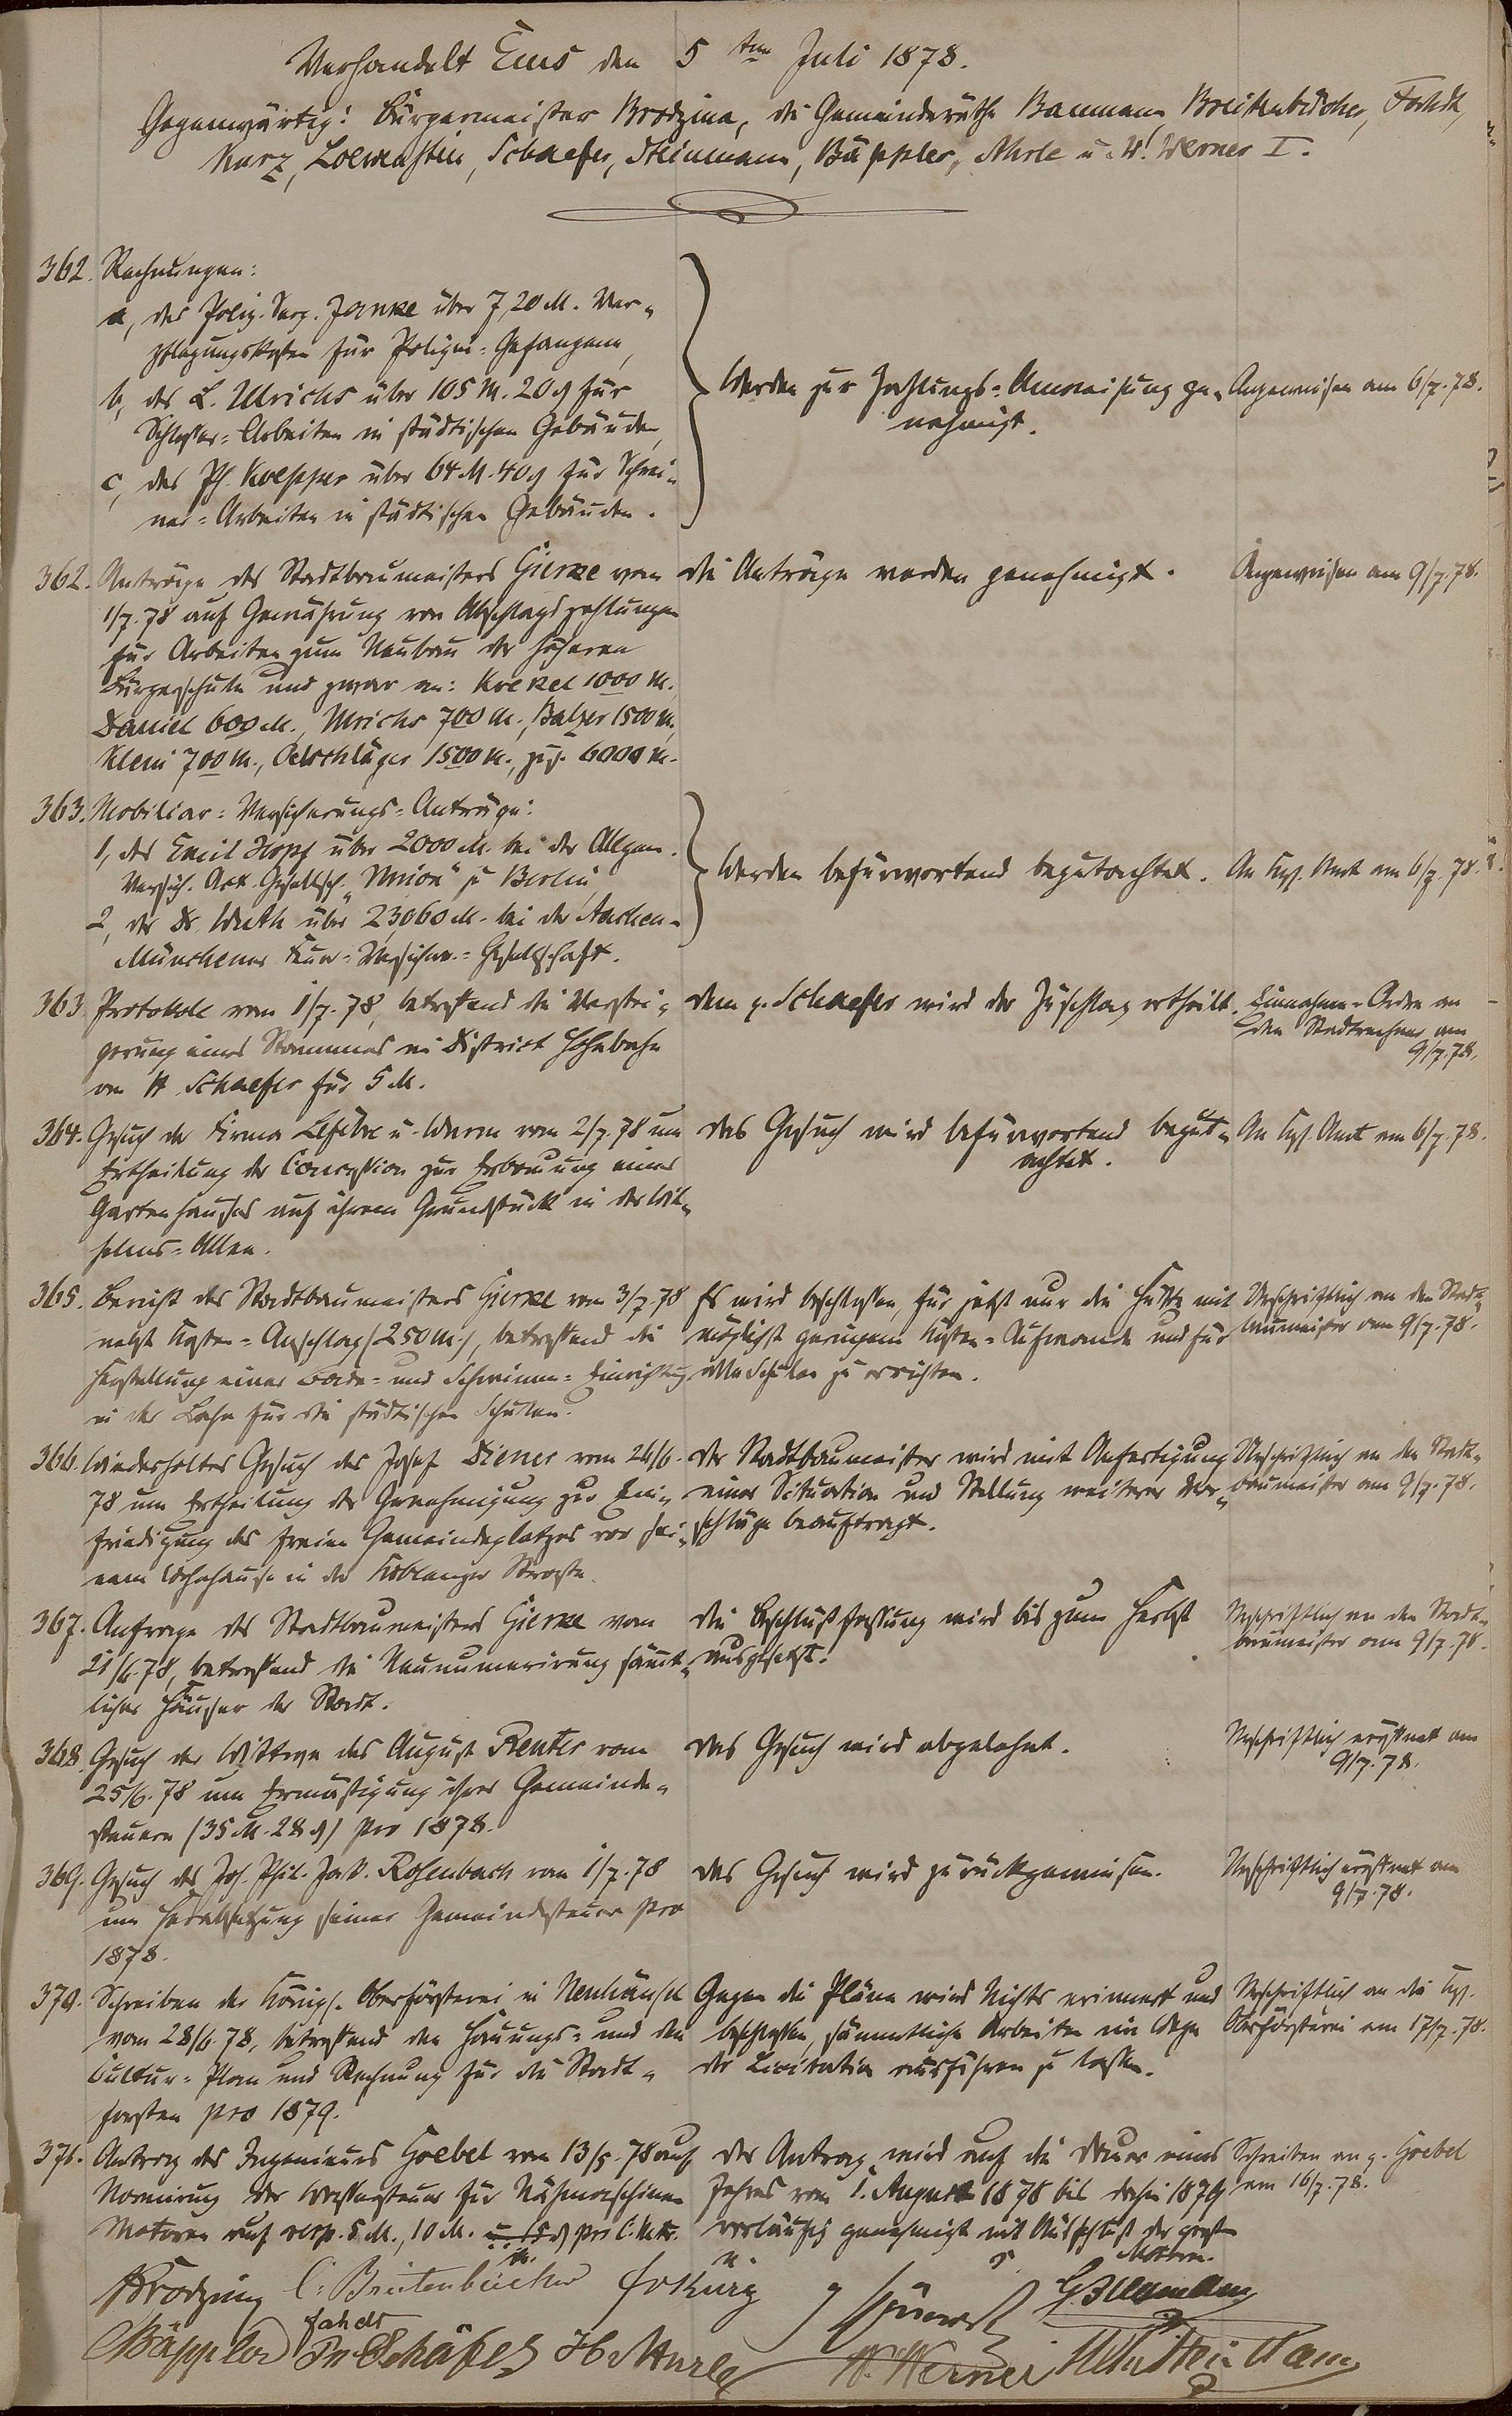 Verhandelt Ems den 5ten Juli 1878.
Gegenwärtig: Bürgermeister Brodzina, die Gemeinderäthe Baumann, Breitenbücher, Fahdt,
Kurz, Loewenstein, Schaefer, Steinmann, Bäppler, Ahrle u. W. Werner I.
362. Rechnungen:
a, des Poliz. Serg. Janke über 7,20 M. Ver-
pflegungskosten für Polizei-Gefangene,
b, des L. Ulrichs über 105 M. 20 ₰ für
Schlosser-Arbeiten in städtischen Gebäuden,
c, des Ph. Koepper über 64 M. 40 ₰ für Schrei-
ner-Arbeiten in städtischen Gebäuden.
Werden zur Zahlungs-Anweisung ge-
nehmigt.
Angewiesen am 6/7.78.
362. Anträge des Stadtbaumeisters Gierke vom
1/7.78 auf Gewährung von Abschlagszahlungen
für Arbeiten zum Neubau der höheren
Bürgerschule und zwar an: Krekel 1000 M.,
Daniel 600 M., Ulrichs 700 M., Balzer 1500 M.,
Klein 700 M., Oelschläger 1500 M., zus. 6000 M.
Die Anträge werden genehmigt.
Angewiesen am 9/7.78.
363. Mobiliar-Versicherungs-Anträge:
1, des Emil Hopf über 2000 M. bei der Allgem.
Versich. Act. Gesellsch. "Union" zu Berlin,
2, des Dr. Wuth über 23060 M. bei der Aachen-
Münchener Feuer-Versicher.-Gesellschaft.
Werden befürwortend begutachtet.
An Kgl. Amt am 6/7.78.
363. Protokoll vom 1/7.78, betreffend die Verstei-
gerung eines Stammes im District Hohebuche
an H Schaefer für 5 M.
Dem p. Schaefer wird der Zuschlag ertheilt.
Einnahme-Ordre an
den Stadtrechner am
9/7.78.
364. Gesuch der Firma Lefébre u. Wurm vom 2/7.78 um
Ertheilung der Concession zur Erbauung eines
Gartenhauses auf ihrem Grundstück in der Wil-
helms-Allee.
Das Gesuch wird befürwortend begut-
achtet.
An Kgl. Amt am 6/7.78.
365. Bericht des Stadtbaumeisters Gierke vom 3/7.78
nebst Kosten-Anschlag (250 M.), betreffend die
Herstellung einer Bade- und Schwimm-Einrichtung
in der Lahn für die städtischen Schulen.
Es wird beschlossen, für jetzt nur die Hütte mit
möglichst geringem Kosten-Aufwande und für
alle Schulen zu errichten.
Urschriftlich an den Stadt-
baumeister am 9/7.78.
366. Wiederholtes Gesuch des Josef Diener vom 26/6.
78 um Ertheilung der Genehmigung zur Ein-
friedigung des freien Gemeindeplatzes vor sei-
nem Wohnhause in der Koblenzer Strasse.
Der Stadtbaumeister wird mit Anfertigung
einer Situation und Stellung weiterer Vor-
schläge beauftragt.
Urschriftlich an den Stadt-
baumeister am 9/7.78.
367. Anfrage des Stadtbaumeisters Gierke vom
21/6.78, betreffend die Neunumerirung sämt-
licher Häuser der Stadt.
Die Beschlußfassung wird bis zum Herbst
ausgesetzt.
Urschriftlich an den Stadt-
baumeister am 9/7.78.
368. Gesuch der Wittwe des August Reuter vom
25/6.78 um Ermäßigung ihrer Gemeinde-
steuern (35 M. 28 ₰) pro 1878.
Das Gesuch wird abgelehnt.
Urschriftlich eröffnet am
9/7.78.
369. Gesuch des Joh. Phil. Jak. Rosenbach vom 1/7.78
um Herabsetzung seiner Gemeindesteuer pro
1878.
Das Gesuch wird zurückgewiesen.
Urschriftlich eröffnet am
9/7.78.
370. Schreiben der Königl. Oberförsterei in Neuhäusel
vom 28/6.78, betreffend den Hauungs- und den
Cultur-Plan und Rechnung für die Stadt-
forsten pro 1879.
Gegen die Pläne wird Nichts erinnert und
beschlossen, sämmtliche Arbeiten im Wege
der Licitation ausführen zu lassen.
Urschriftlich an die Kgl.
Oberförsterei am 17/7.78.
371. Antrag des Ingenieurs Goebel vom 13/5.78 auf
Normirung der Wassersteuer für Nähmaschinen
Motoren auf resp. 5 M., 10 M. u. 15 ₰ pro C. Mtr.
Der Antrag wird auf die Dauer eines
Jahres vom 1. August 1878 bis dahin 1879
vorläufig genehmigt mit Ausschluß der großen
Motoren.
Schreiben an p. Goebel
am 16/7.78.
Brodzina C. Breitenbücher Kurz G Baumann
Bäppler Fahdt Schäfer H. Ahrle W. Werner Steinmann